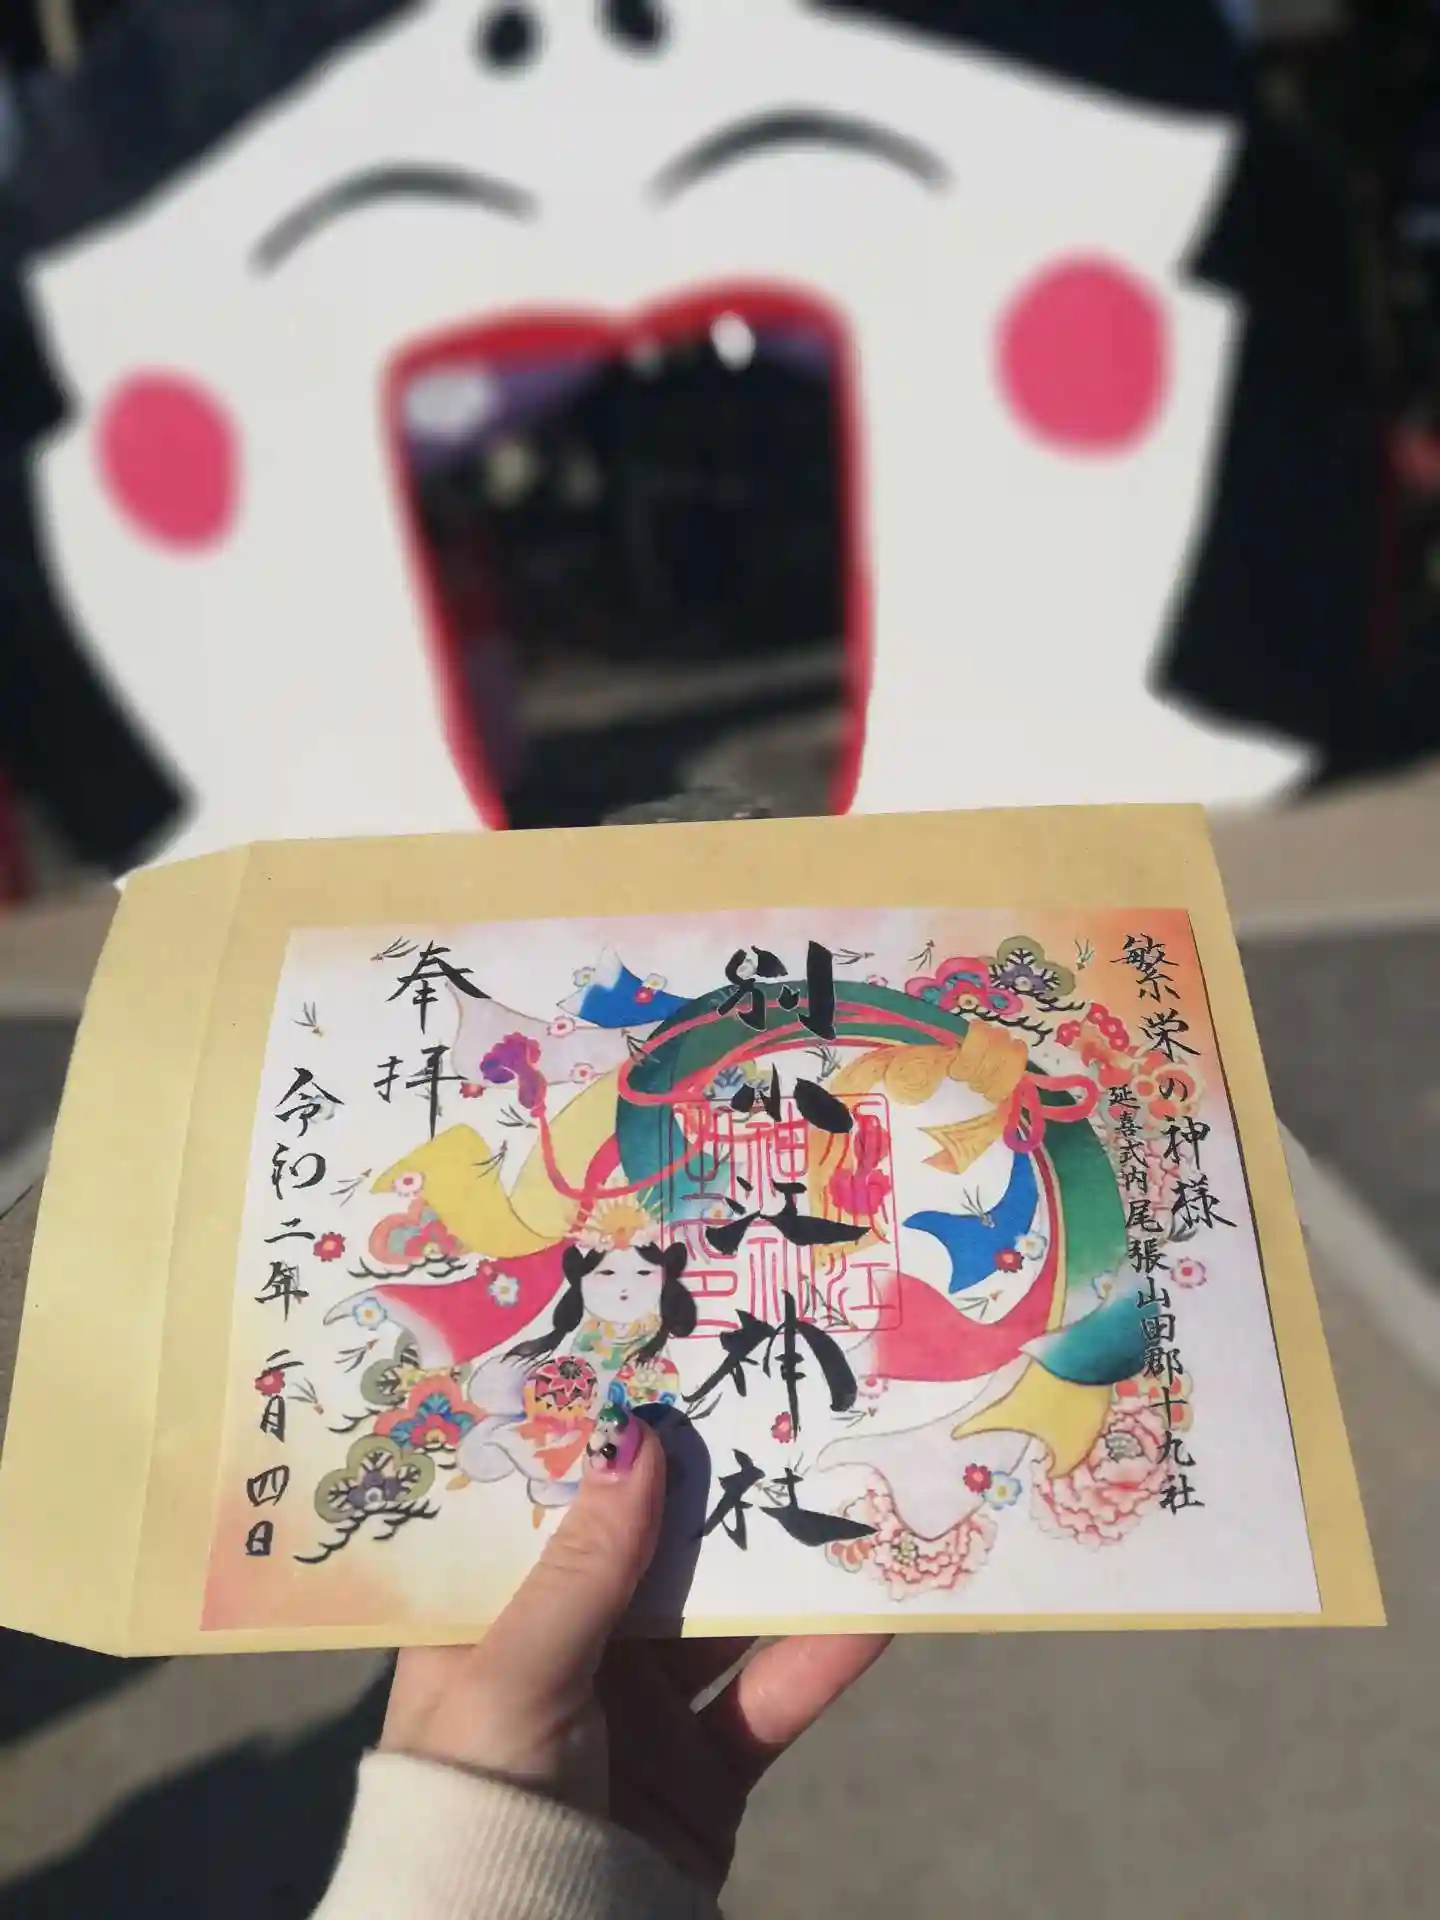 繁栄の神様
延喜式内 尾張山田郡十九社
別小江神社
奉拝
令和二年 二月 四日